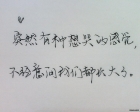 突然有种想哭的感觉，
不经意间我们都长大了。